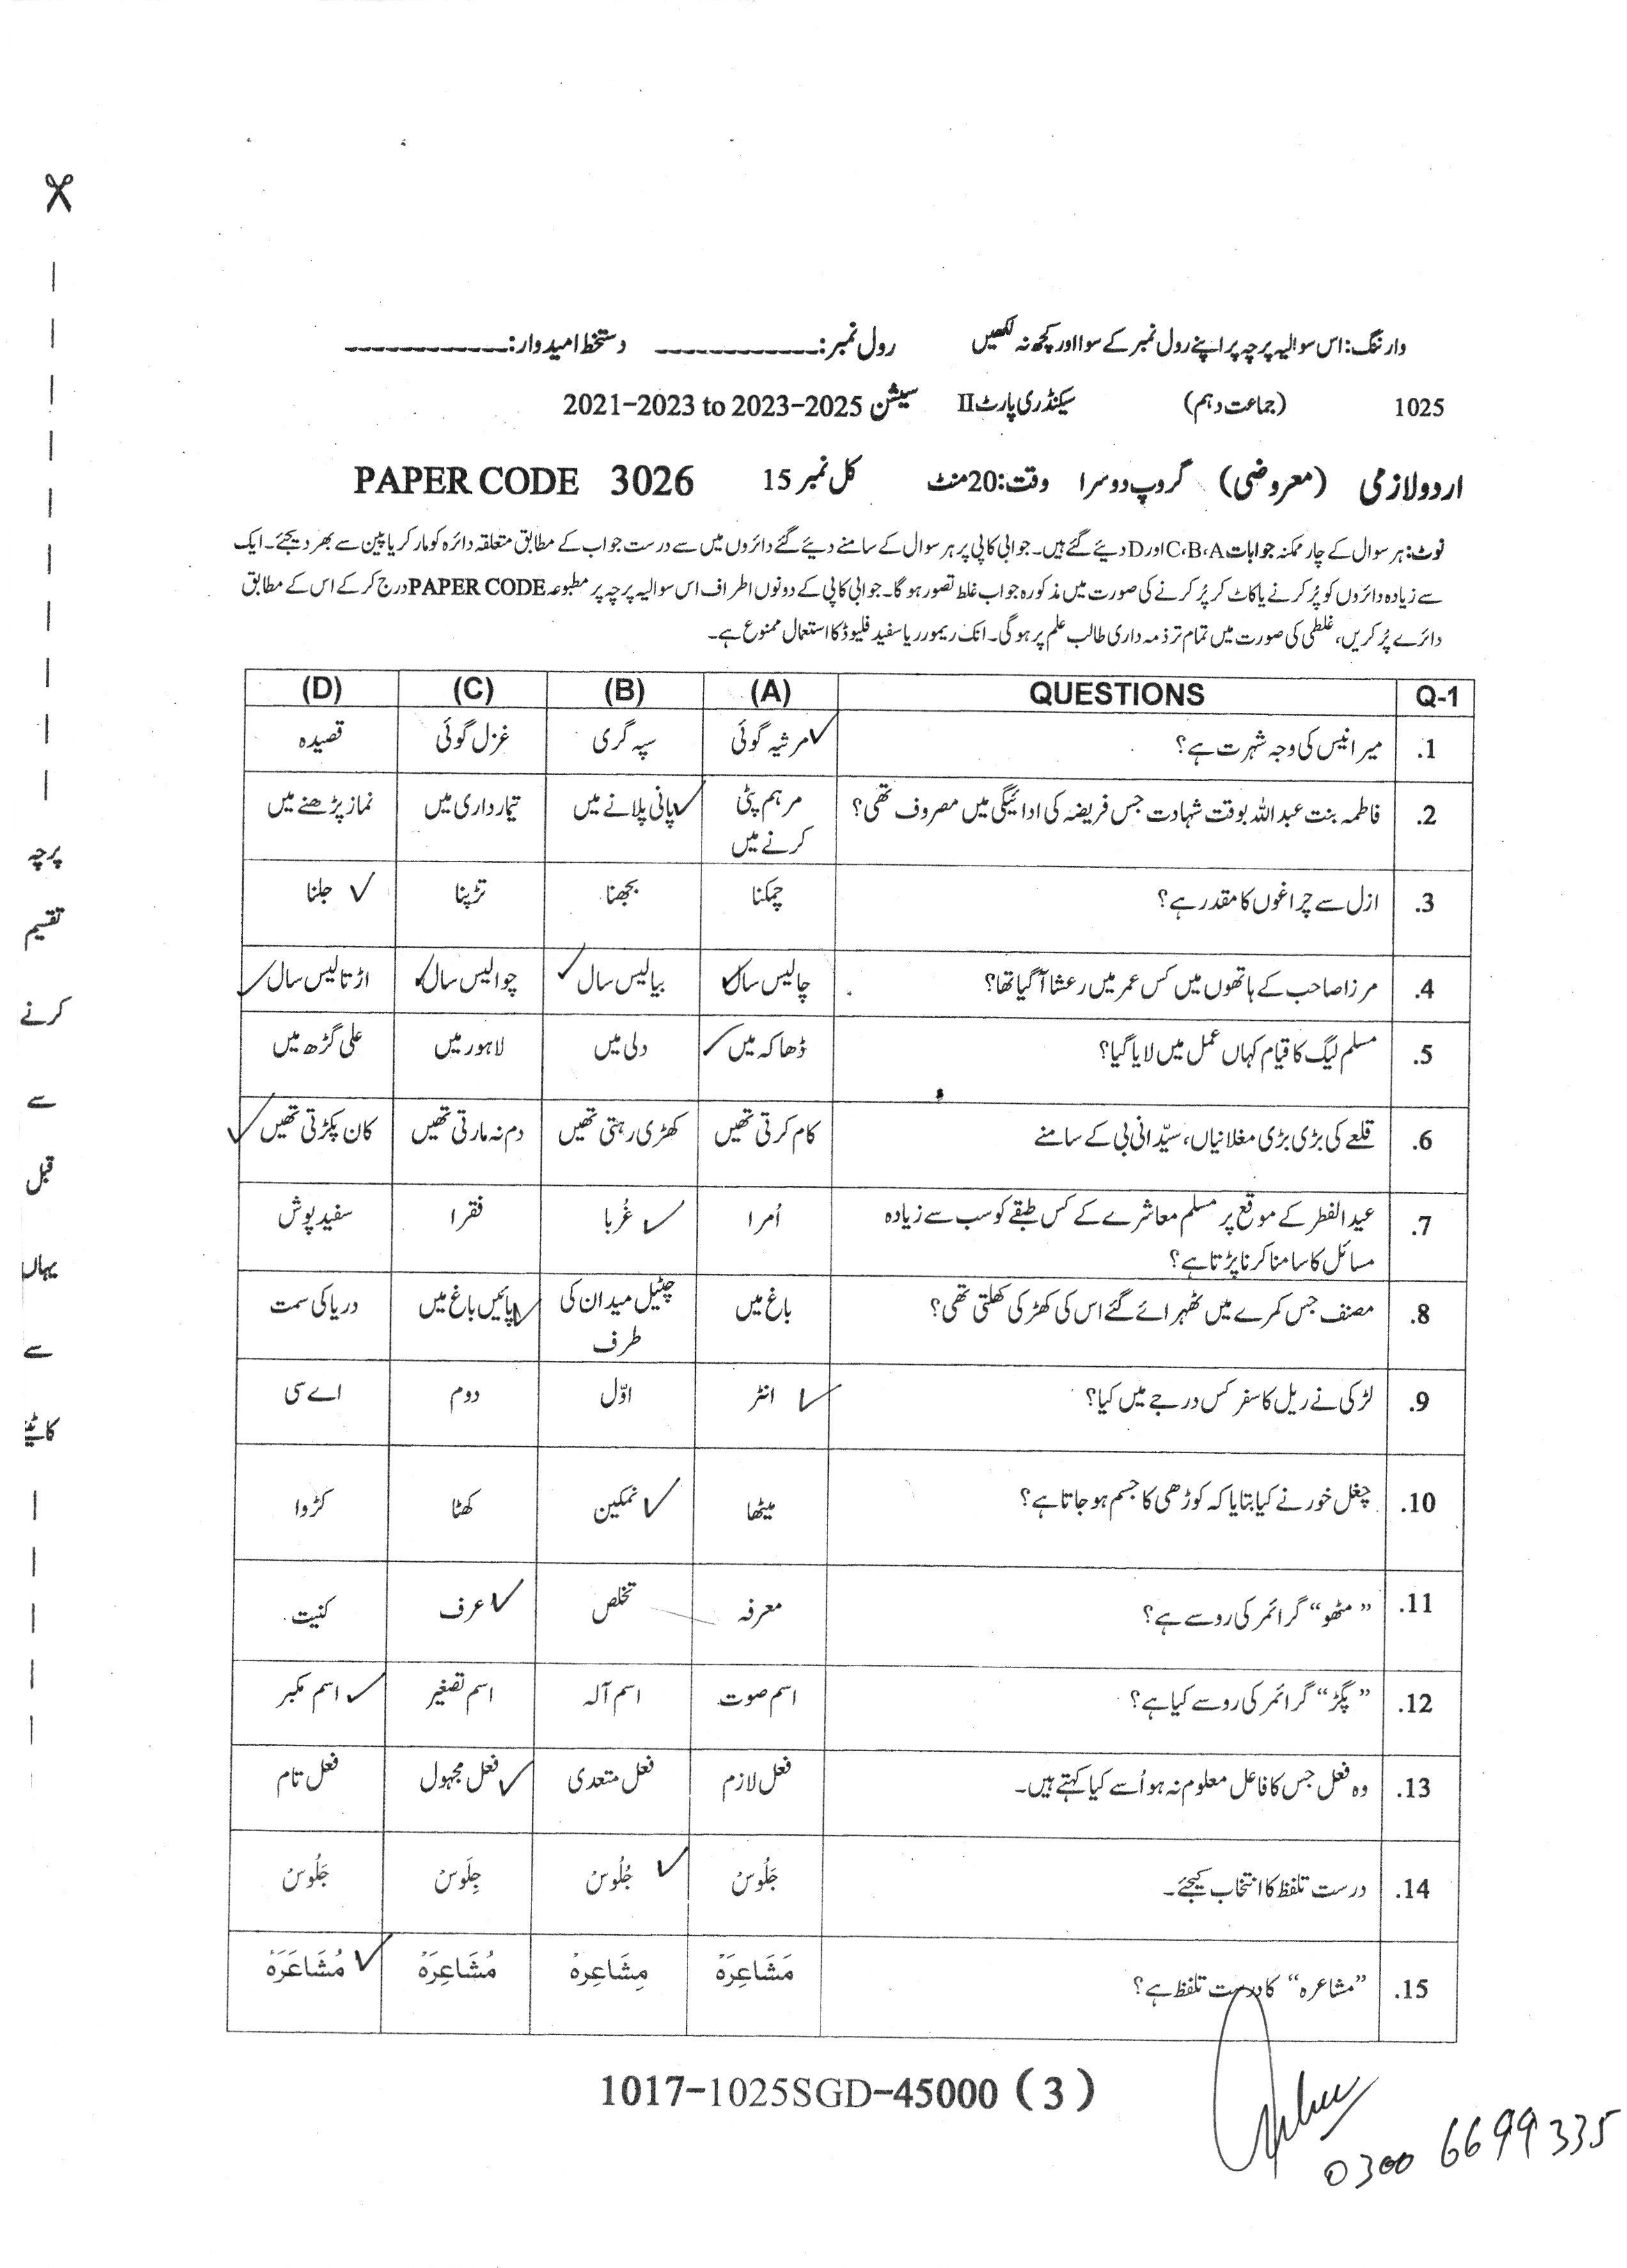 وارننگ: اس سوالیہ پرچہ پر اپنے رول نمبر کے سوا اور کچھ نہ لکھیں رول نمبر: ____________ دستخط امیدوار: ____________
1025 (جماعت دہم) سیکنڈری پارٹ II سیشن 2021-2023 to 2023-2025
اردو لازمی (معروضی) گروپ دوسرا وقت: 20 منٹ کل نمبر 15 PAPER CODE 3026
نوٹ: ہر سوال کے چار ممکنہ جوابات C،B،A اور D دیئے گئے ہیں۔ جوابی کاپی پر ہر سوال کے سامنے دیئے گئے دائروں میں سے درست جواب کے مطابق متعلقہ دائرہ کو مارکر یا پین سے بھر دیجئے۔ ایک
سے زیادہ دائروں کو پُر کرنے یا کاٹ کر پُر کرنے کی صورت میں مذکورہ جواب غلط تصور ہو گا۔ جوابی کاپی کے دونوں اطراف اس سوالیہ پرچہ پر مطبوعہ PAPER CODE درج کر کے اس کے مطابق
دائرے پُر کریں، غلطی کی صورت میں تمام تر ذمہ داری طالب علم پر ہو گی۔ انک ریموور یا سفید فلیوڈ کا استعمال ممنوع ہے۔
Q-1 QUESTIONS (A) (B) (C) (D)
1. میر انیس کی وجہ شہرت ہے؟ ✓مرثیہ گوئی سپہ گری غزل گوئی قصیدہ
2. فاطمہ بنت عبداللہ بوقت شہادت جس فریضہ کی ادائیگی میں مصروف تھی؟ مرہم پٹی ✓پانی پلانے میں تیمارداری میں نماز پڑھنے میں
کرنے میں
3. ازل سے چراغوں کا مقدر ہے؟ چمکنا بجھنا تڑپنا ✓ جلنا
4. مرزا صاحب کے ہاتھوں میں کس عمر میں رعشا آ گیا تھا؟ چالیس سال✓ بیالیس سال✓ چوالیس سال✓ اڑتالیس سال✓
5. مسلم لیگ کا قیام کہاں عمل میں لایا گیا؟ ڈھاکہ میں✓ دلی میں لاہور میں علی گڑھ میں
6. قلعے کی بڑی بڑی مغلانیاں، سیّدانی بی کے سامنے کام کرتی تھیں کھڑی رہتی تھیں دم نہ مارتی تھیں کان پکڑتی تھیں✓
7. عید الفطر کے موقع پر مسلم معاشرے کے کس طبقے کو سب سے زیادہ اُمرا ✓غُربا فقرا سفید پوش
مسائل کا سامنا کرنا پڑتا ہے؟
8. مصنف جس کمرے میں ٹھہرائے گئے اس کی کھڑکی کھلتی تھی؟ باغ میں چٹیل میدان کی ✓پائیں باغ میں دریا کی سمت
طرف
9. لڑکی نے ریل کا سفر کس درجے میں کیا؟ ✓ انٹر اوّل دوم اے سی
10. چغل خور نے کیا بتایا کہ کوڑھی کا جسم ہو جاتا ہے؟ میٹھا ✓نمکین کھٹا کڑوا
11. ”مٹھو“ گرائمر کی رو سے ہے؟ معرفہ تخلص ✓عرف کنیت
12. ”پگڑ“ گرائمر کی رو سے کیا ہے؟ اسم صوت اسم آلہ اسم تصغیر ✓اسم مکبر
13. وہ فعل جس کا فاعل معلوم نہ ہو اُسے کیا کہتے ہیں۔ فعل لازم فعل متعدی ✓فعل مجہول فعل تام
14. درست تلفظ کا انتخاب کیجئے۔ جَلُوسْ ✓ جُلُوسْ جِلَوسْ جَلُوسْ
15. ”مشاعرہ“ کا درست تلفظ ہے؟ مَشَاعِرَہْ مِشَاعِرہْ مُشَاعِرَہْ ✓مُشَاعَرَہْ
1017-1025SGD-45000 (3)
0300 6699335
پرچہ
تقسیم
کرنے
سے
قبل
یہاں
سے
کاٹیے